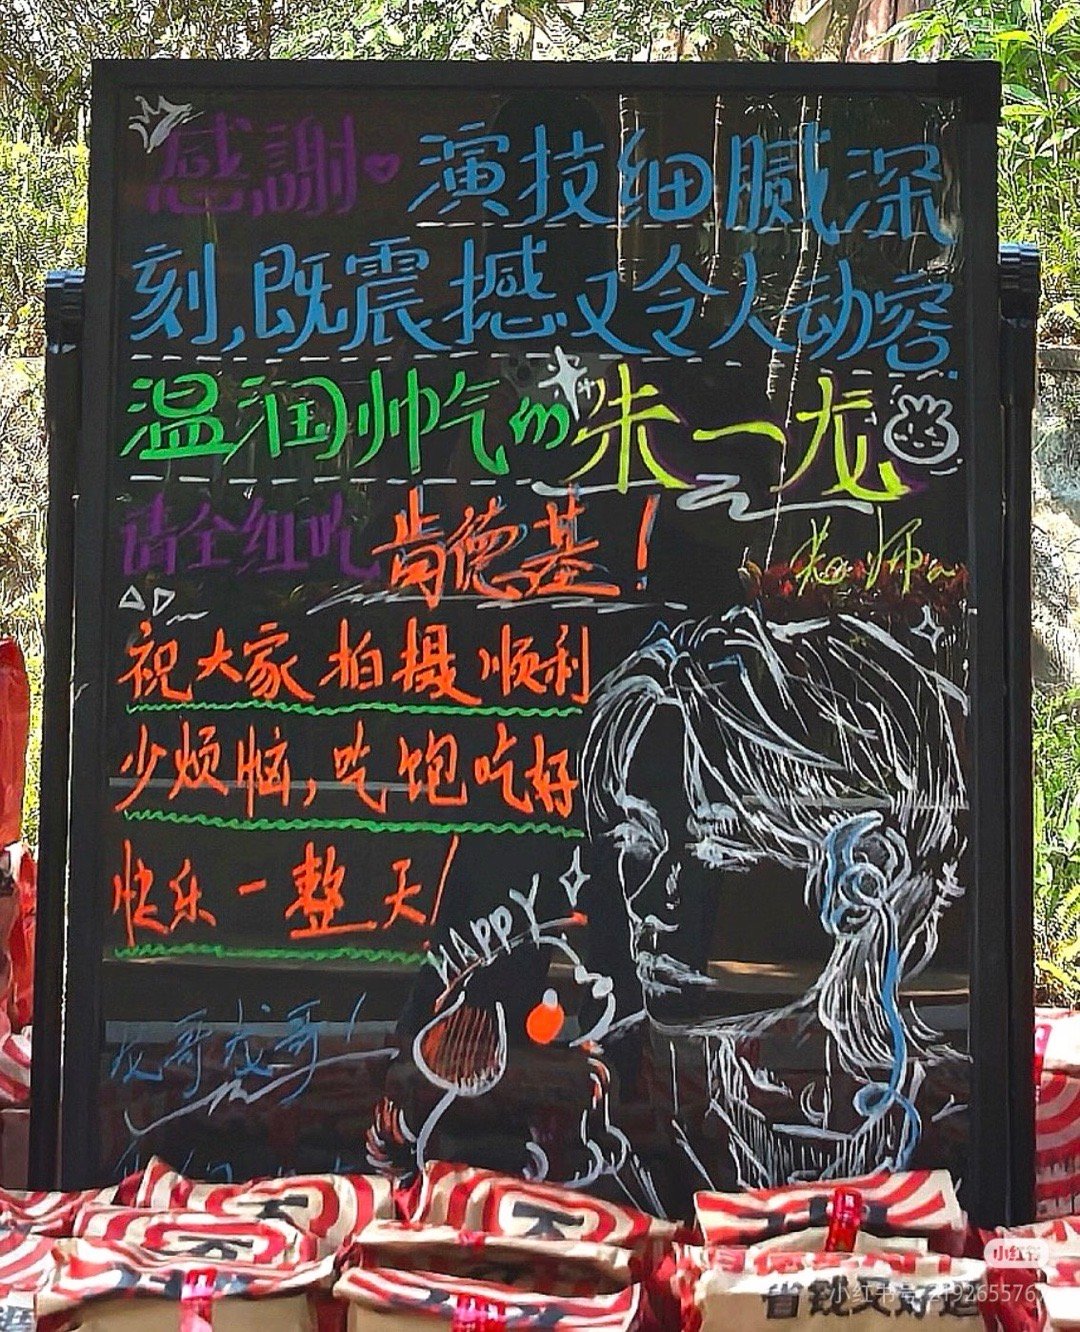 感謝 演技细腻深
刻,既震撼又令人动容
温润帅气的朱一龙
老师~
请全组吃肯德基!
祝大家拍摄顺利
少烦恼,吃饱吃好
快乐一整天!
HAPPY
龙哥龙哥!
小红书
小红书号
省钱又